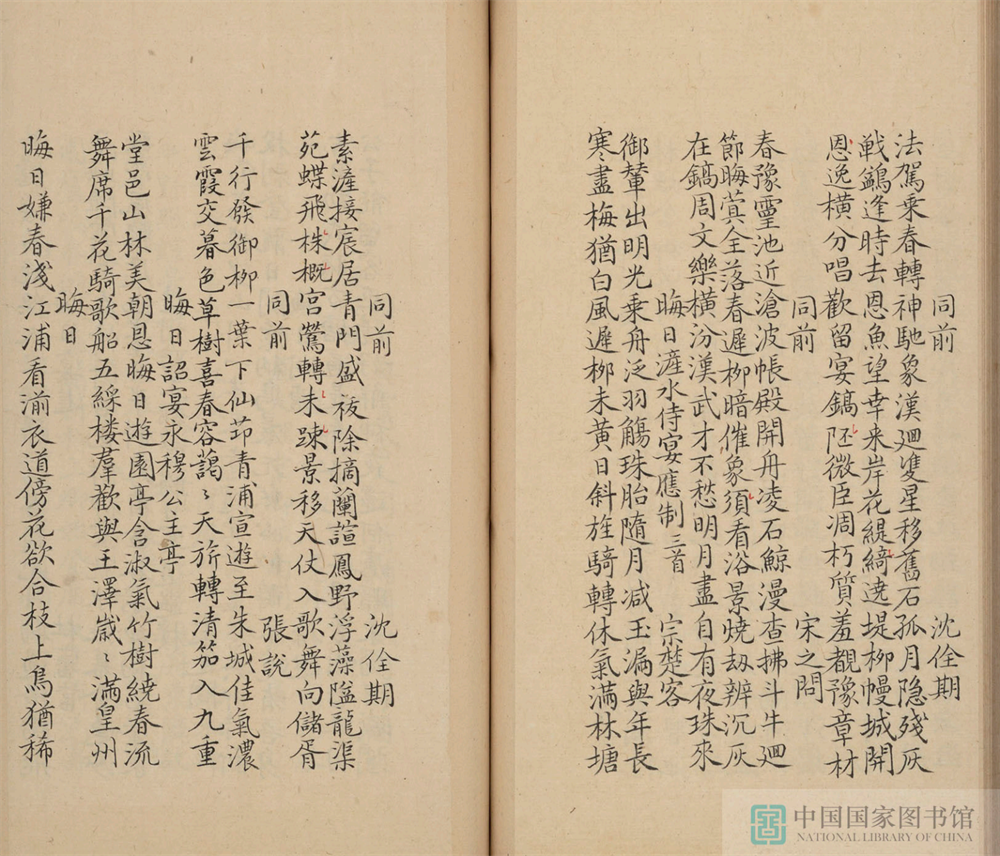 同前 沈佺期
法駕乘春轉神馳象漢廻雙星移舊石孤月隐殘灰
戦鷁逢時去恩魚望幸来岸花緹綺遶堤柳幔城開
恩逸横分唱歡留宴鎬𬩽微臣凋朽質羞覩豫章材
同前 宋之問
春豫霊池近滄波帳殿開舟凌石鯨漫查拂斗牛廻
節晦蓂全落春遲柳暗催象須看浴景焼刼辨沉灰
在鎬周文樂横汾漢武才不愁明月盡自有夜珠來
晦日滻水侍宴應制三首 宗楚客
御輦出明光乘舟泛羽觴珠胎隨月减玉漏與年長
寒盡梅猶白風遲柳未黄日斜旌騎轉休氣滿林塘
同前 沈佺期
素滻接宸居青門盛祓除摘蘭諠鳳野浮藻隘龍渠
苑蝶飛株概宮鶯轉未踈景移天仗入歌舞向儲胥
同前 張說
千行發御柳一葉下仙茆青浦宣遊至朱城佳氣濃
雲霞交暮色草樹喜春容藹〻天旂轉清笳入九重
晦日詔宴永穆公主亭
堂邑山林美朝恩晦日遊園亭含淑氣竹樹繞春流
舞席千花騎歌船五綵楼羣歡與王澤嵗〻滿皇州
晦日
晦日嫌春淺江浦看湔衣道傍花欲合枝上鳥猶稀
中国国家图书馆
NATIONAL LIBRARY OF CHINA